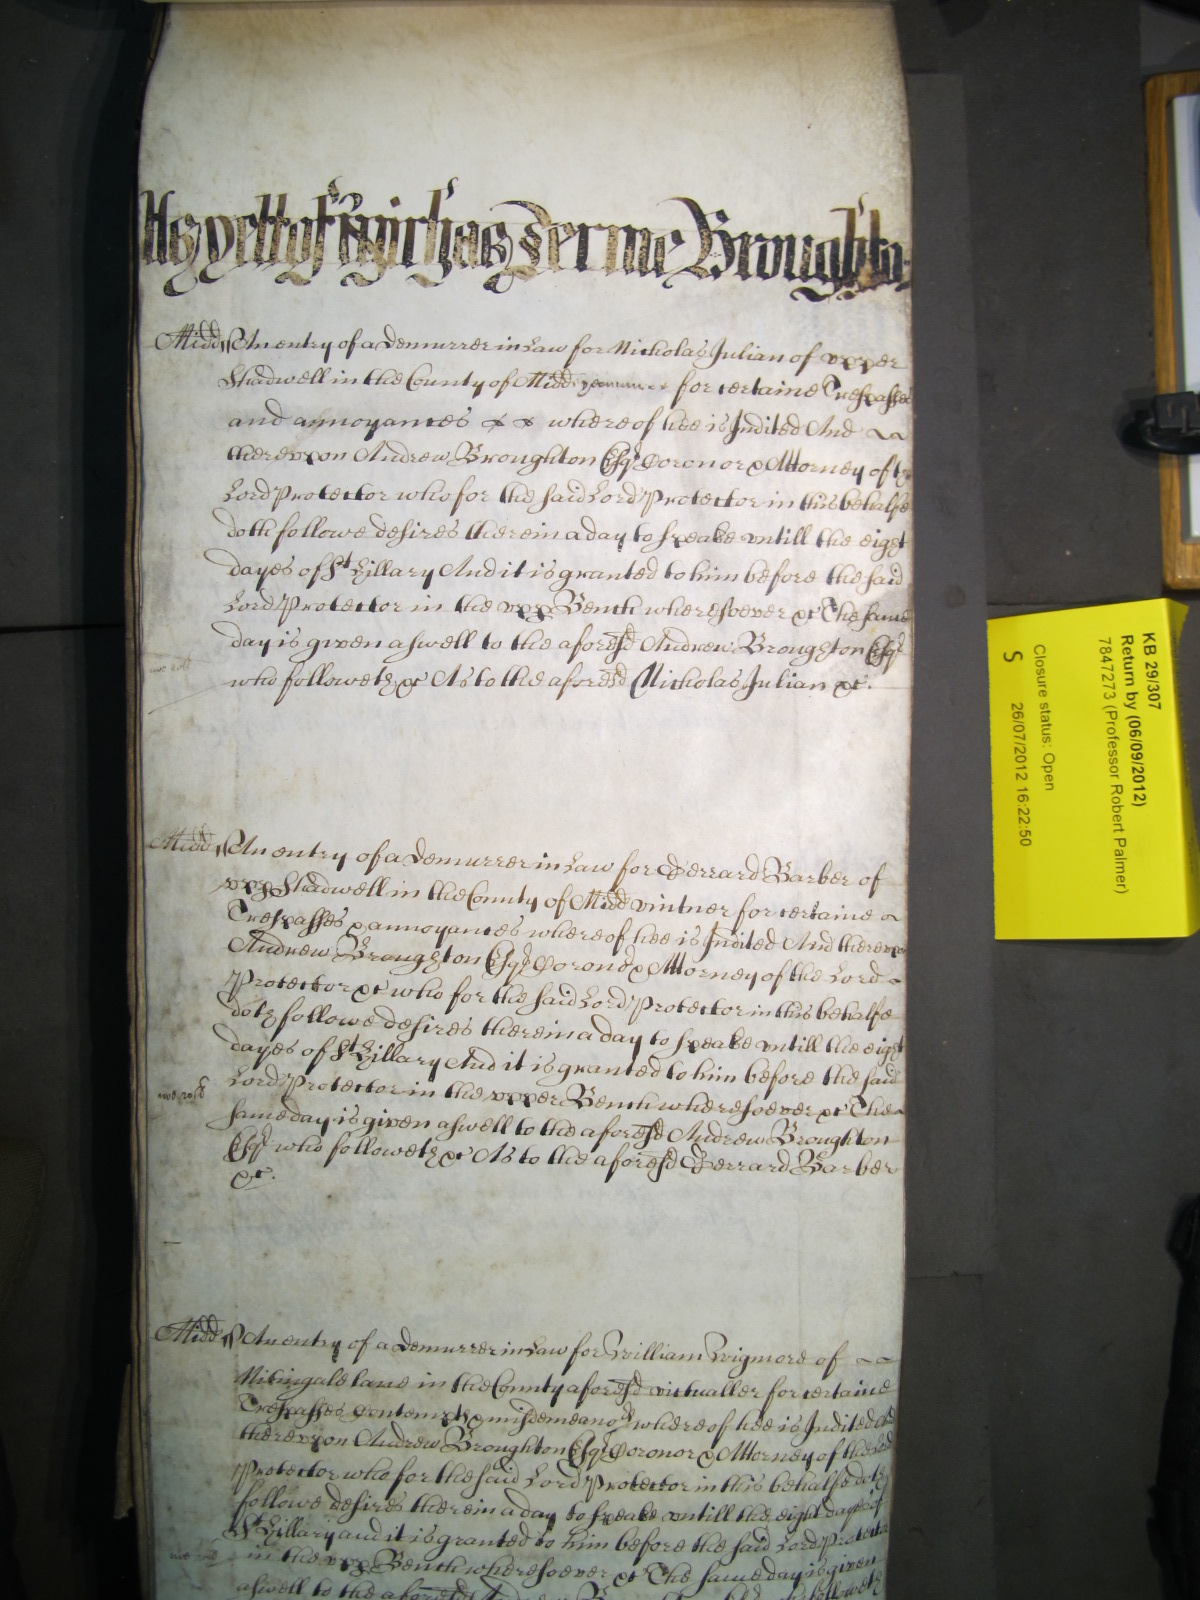 As yett of Michas Terme Broughton
Midd ss An entry of a Demurrer in Law for Nicholas Julian of upper
Shadwell in the County of Midd for certaine Trespasses
and annoyances & & whereof hee is Indited And
thereupon Andrew Broughton Esqr Coronor & Attorney of the
Lord Protector who for the said Lord Protector in this behalfe
doth followe desires therein a day to speake untill the eight
dayes of St Hillary And it is granted to him before the said
Lord Protector in the upp Bench wheresoever &c The same
day is given aswell to the aforesd Andrew Broughton Esqr
who followeth &c As to the aforesd Nicholas Julian &c.
Midd ss An entry of a Demurrer in Law for Gerrard Barber of
upp Shadwell in the County of Midd vintner for certaine
Trespasses & annoyances whereof hee is Indited And thereupon
Andrew Broughton Esqr Corono & Attorney of the Lord
Protector &c who for the said Lord Protector in this behalfe
doth followe desires therein a day to speake untill the eight
dayes of St Hillary And it is granted to him before the said
Lord Protector in the upper Bench wheresoever &c The
same day is given aswell to the aforesd Andrew Broughton
Esqr who followeth &c As to the aforesd Gerrard Barber
&c.
Midd ss An entry of a Demurrer in Law for William Wigmore of
Nitingale lane in the County aforesd victualler for certaine
Trespasses contempts & misdemeanors whereof hee is Indited And
thereupon Andrew Broughton Esqr Coronor & Attorney of the Lord
Protector who for the said Lord Protector in this behalfe doth
followe desires therein a day to speake untill the eight dayes of
St Hillary and it is granted to him before the said Lord Protector
in the upp Bench wheresoever &c The same day is given
aswell to the aforesd Andrew followeth
KB 29/307
Return by (06/09/2012)
7847273 (Professor Robert Palmer)
Closure status: Open
S 26/07/2012 16:22:50